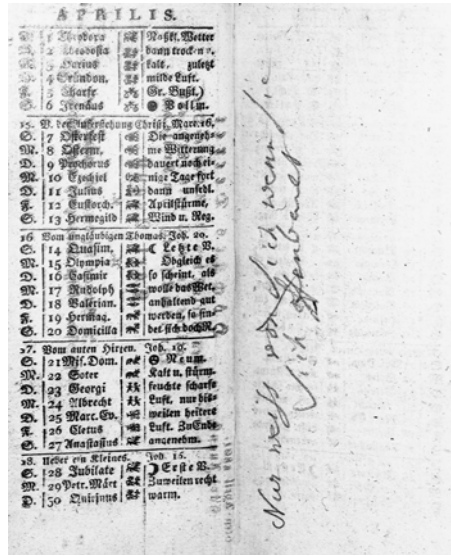 APRILIS.
D. 1 Theodora Naßkl. Wetter
D. 2 Theodosia dann trocken
M. 3 Darius kalt, zuletzt
D. 4 Gründon. milde Luft.
F. 5 Charfr. Gr. Bußt.)
S. 6 Irenäus Vollm.
15. V. der Auferstehung Christi, Marc. 16.
S. 7 Osterfest Die angeneh-
M. 8 Osterm. me Witterung
D. 9 Prochorus dauert noch ei-
M. 10 Ezechiel nige Tage fort
D. 11 Julius dann unfedl.
F. 12 Eustorch. Aprilstürme,
S. 13 Hermegild Wind u. Reg.
16 Vom ungläubigen Thomas. Joh. 20.
S. 14 Quasim. Letzte V.
M. 15 Olympia Obgleich es
D. 16 Casimir so scheint, als
M. 17 Rudolph wolle das Wet.
D. 18 Valerian. anhaltend gut
F. 19 Hermag. werden, so fin-
S. 20 Domicilla det sich doch R.
17. Vom guten Hirten. Joh. 10.
S. 21 Mis. Dom. Neum.
M. 22 Soter Kalt u. stürm.
D. 23 Georgi feuchte scharfe
M. 24 Albrecht Luft, nur bis-
D. 25 Marc. Ev. weilen heitere
F. 26 Cletus Luft. Zu Ende
S. 27 Anastasius angenehm.
18. Ueber ein Kleines. Joh. 16.
S. 28 Jubilate Erste V.
M. 29 Petr. Märt Zuweilen recht
D. 30 Quirinus warm.
Nur weiß von sich wenn sie
sich